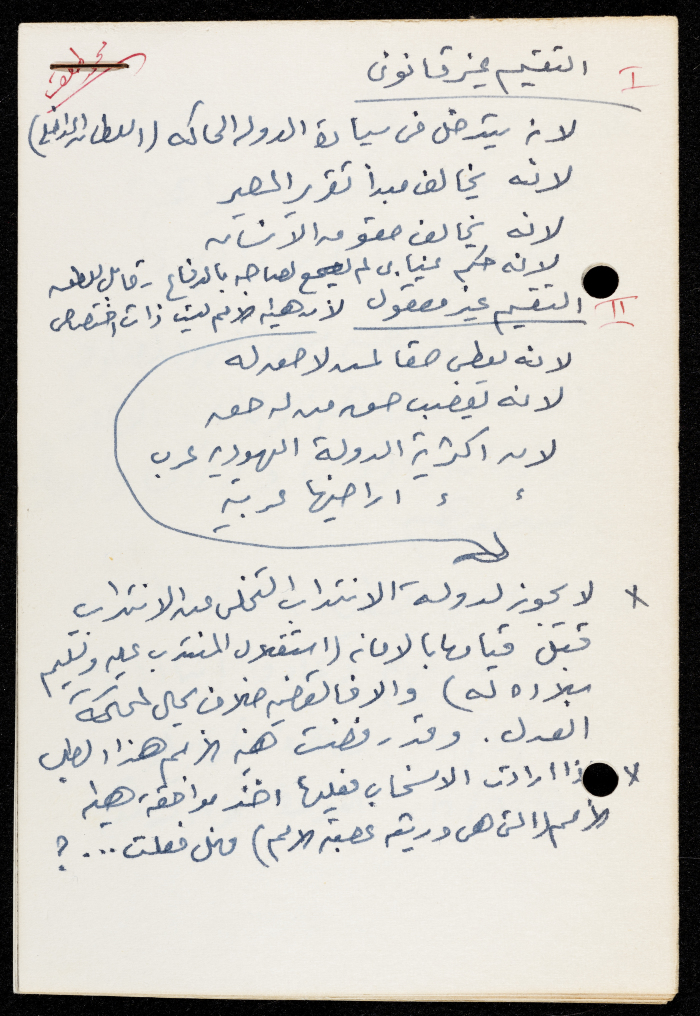 I التقسيم غير قانوني
لانه يتدخل في سيادة الدولة الحاكمة (السلطان الداخلي)
لانه يخالف مبدأ تقرير المصير
لانه يخالف حقوق الانسان
لانه حكم غيابي لم يسمح لصاحبه بالدفاع - قابل للطعن
II التقسيم غير معقول لان هيئة الامم ليست ذات اختصاص
لانه يعطي حقا لمن لا حق له
لانه يغضب حق من له حق
لان اكثرية الدولة اليهودية عرب
ء ء اراضيها عربية
x لا يجوز لدولة الانتداب التخلي عن الانتداب
قبل قيامها بالامانة (استقلال المنتدب عليه وتسليم
بلاده له) والا فالقضية خلاف يحال لمحكمة
العدل. وقد رفضت هيئة الأمم هذا الطلب
x إذا ارادت الانسحاب فعليها اخذ موافقة هيئة
الأمم (التي هي وريثة عصبة الامم) فهل فعلت ... ؟